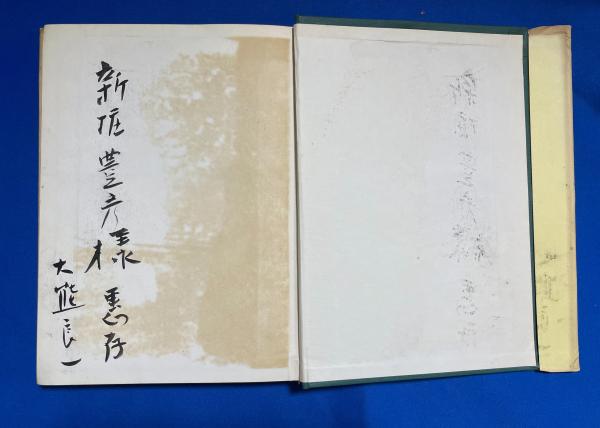 新庄豊彦様 恵存
大熊良一